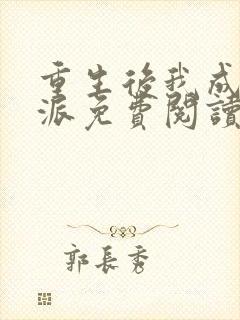 重生後我成
派免費閱讀
郭長秀